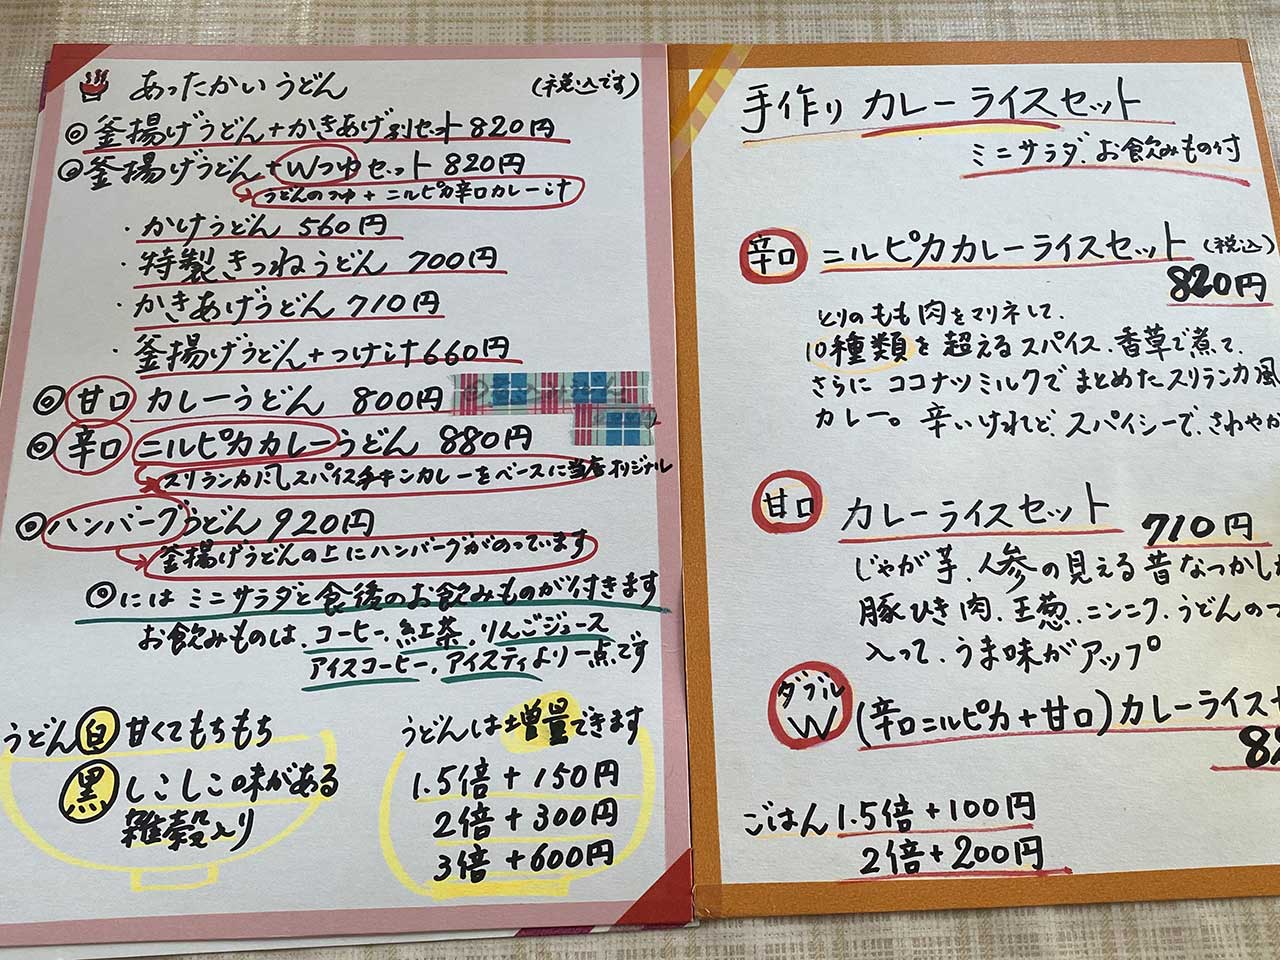 あったかいうどん (税込です)
◎釜揚げうどん+かきあげ別セット 820円
◎釜揚げうどん+Wつゆセット 820円
うどんのつゆ+ニルピカ辛口カレー汁
・かけうどん 560円
・特製きつねうどん 700円
・かきあげうどん 710円
・釜揚げうどん+つけ汁 660円
◎甘口 カレーうどん 800円
◎辛口 ニルピカカレーうどん 880円
スパイスチキンカレーをベースに当店オリジナル
◎ハンバーグうどん 920円
釜揚げうどんの上にハンバーグがのっています
◎にはミニサラダと食後のお飲みものが付きます
お飲みものは、コーヒー、紅茶、りんごジュース
アイスコーヒー、アイスティより一点です
うどん 白 甘くてもちもち
黒 しこしこ味がある
雑穀入り
うどんは増量できます
1.5倍+150円
2倍+300円
3倍+600円
手作りカレーライスセット
ミニサラダ、お飲みもの付
辛口 ニルピカカレーライスセット (税込)
820円
とりのもも肉をマリネして、
10種類を超えるスパイス、香草で煮て、
さらにココナツミルクでまとめたスリランカ風
カレー。辛いけれど、スパイシーで、さわやか
甘口 カレーライスセット 710円
じゃが芋、人参の見える昔なつかし
豚ひき肉、玉葱、ニンニク、うどんのつ
入って、うま味がアップ。
ダブル W (辛口ニルピカ+甘口)カレーライス
ごはん 1.5倍+100円
2倍+200円